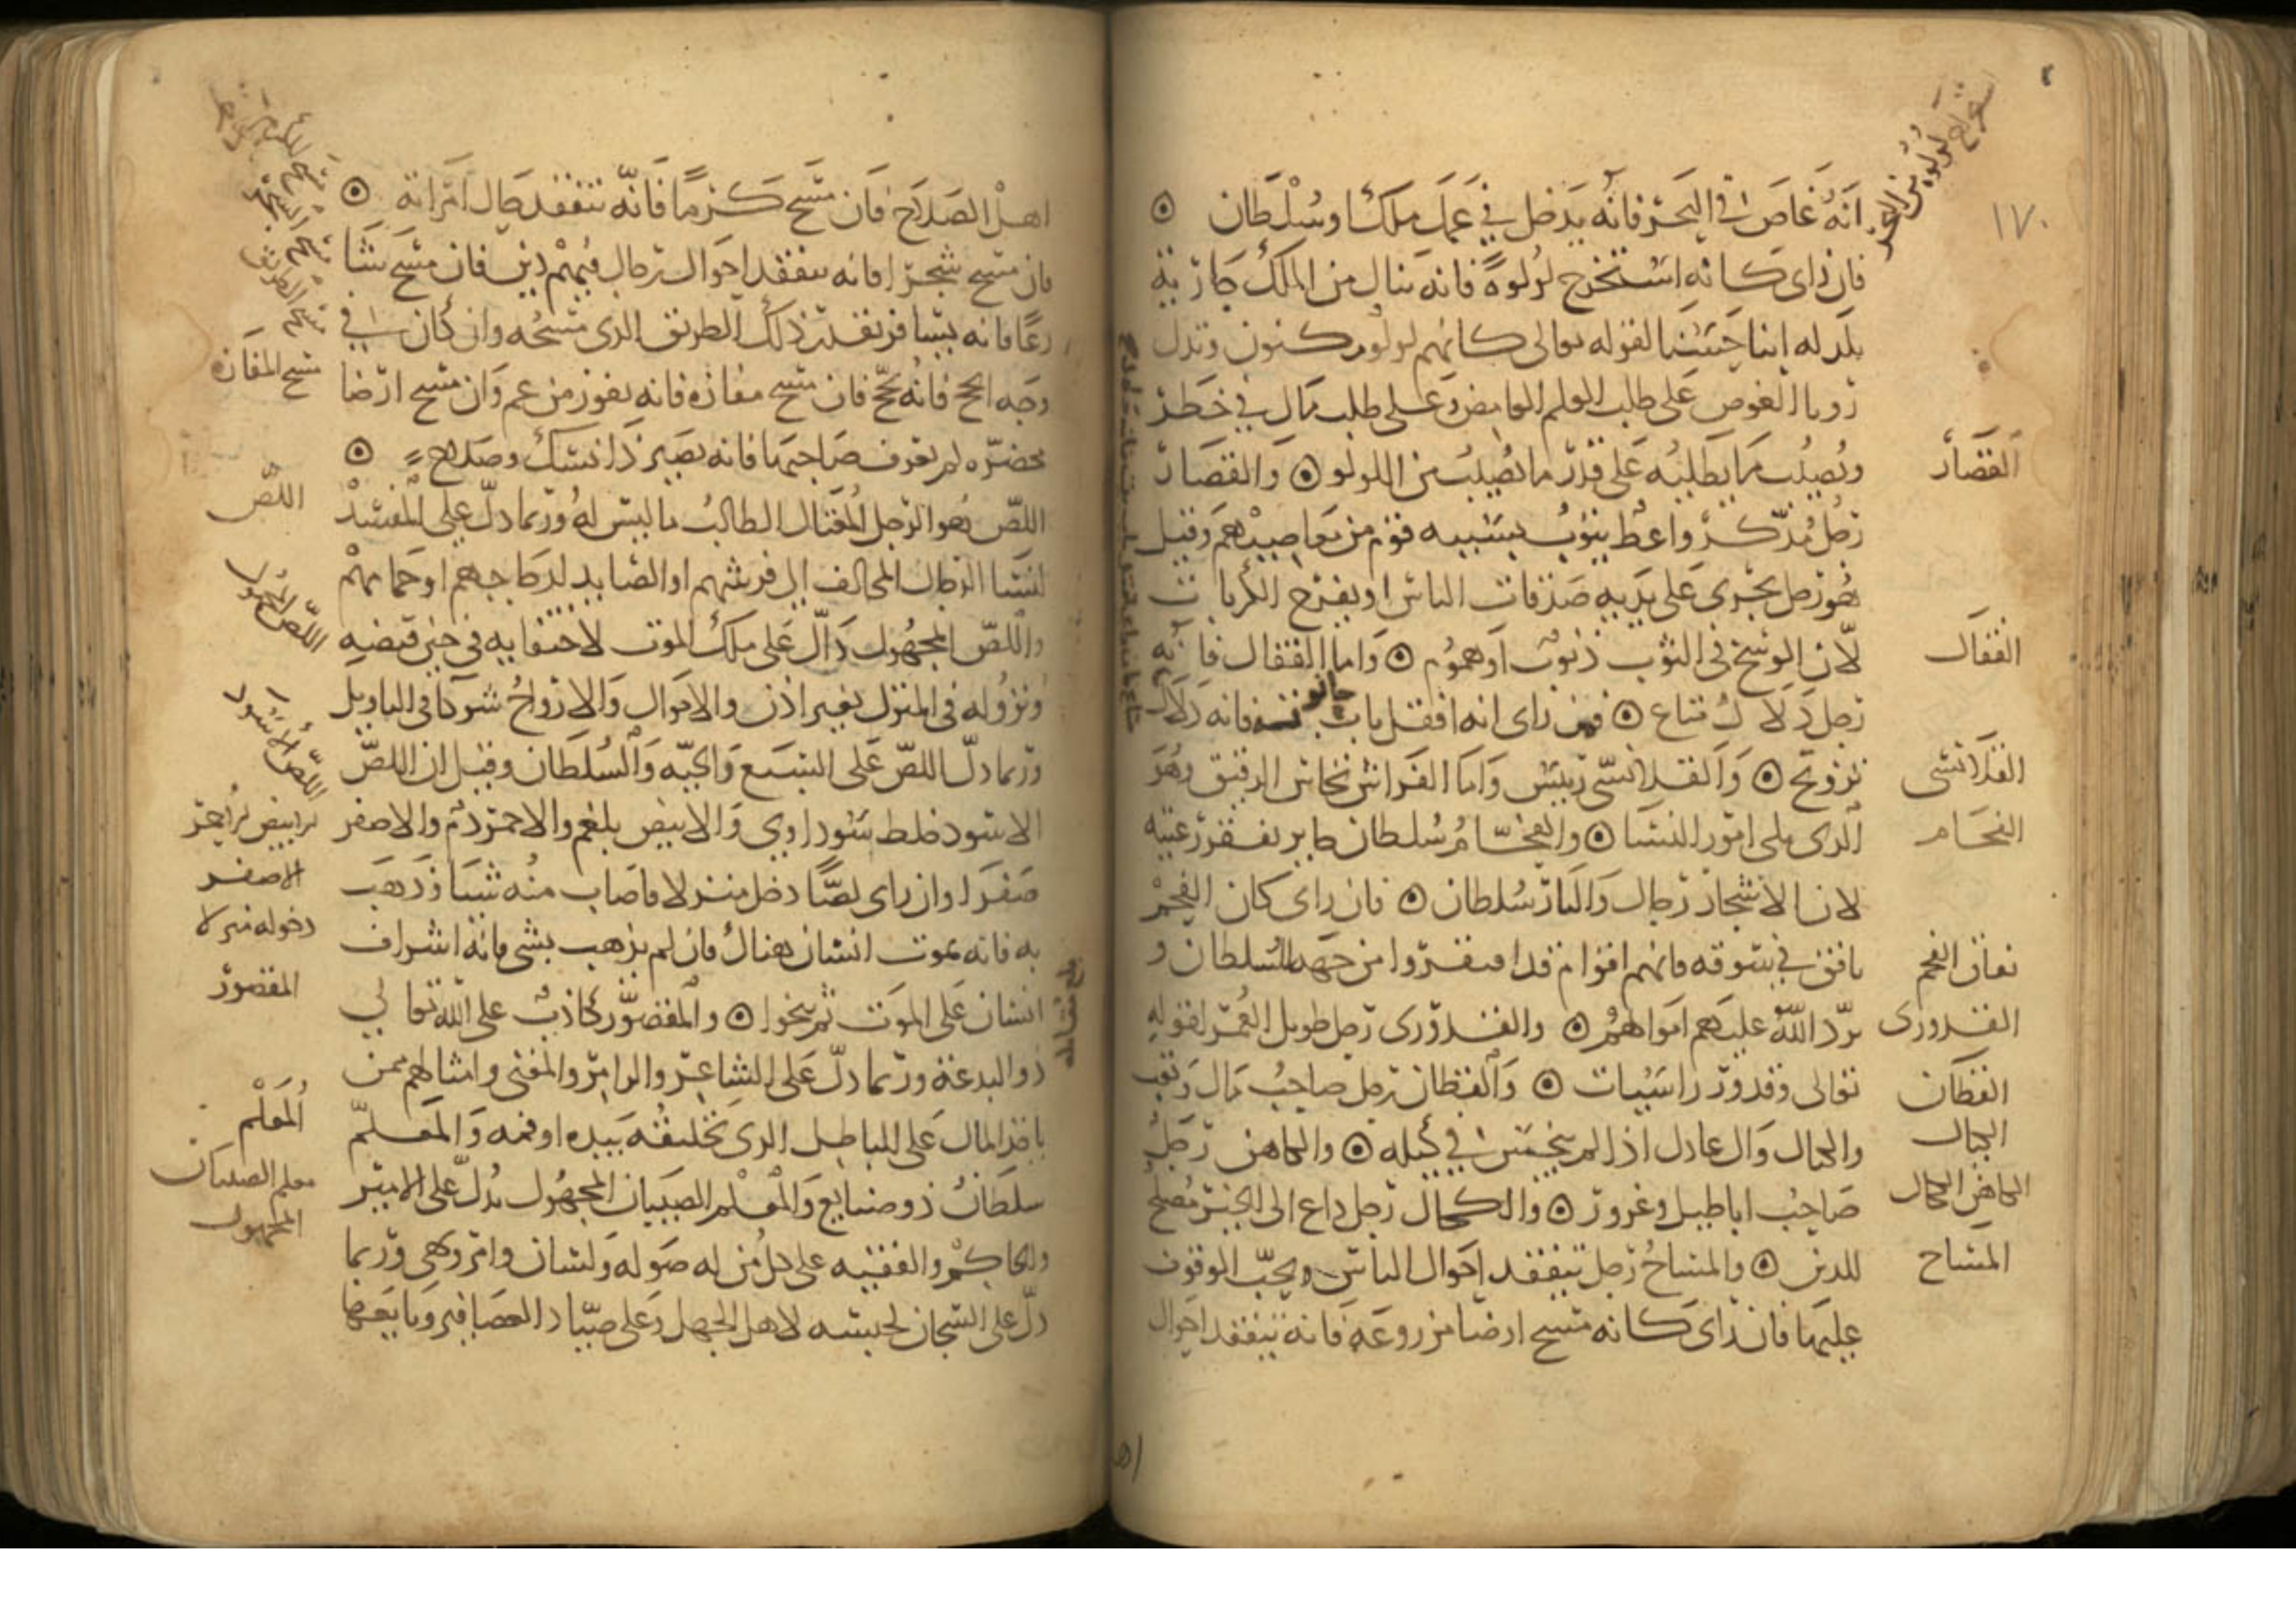 ١٧٠
انه غاص في البحر فانه يدخل في عمل ملك او سلطان
فان راى كانه استخرج لولوة فانه ينال من الملك جارية
يلد له ابنا حسنا لقوله تعالى كانهم لولو مكنون وتدل
رويا الغوص على طلب العلم الغامض وعلى طلب مال في خطر
ويصيب ما يطلبه على قدر ما يصيب من اللولو ۞ والقصار
رجل مذكر واعظ يتوب بسببه قوم من معاصيهم وقيل
هو رجل يجري على يديه صدقات الناس او يفرج الكربات
لان الوسخ في الثوب ذنوب او هموم ۞ واما القفال فانه
رجل دلال متاع ۞ فمن راى انه اقفل باب حانوته فانه دلال
تزويج ۞ والقلانسي رييس واما الفراش نخاس الرقيق وهو
الدى يلى امور النسا ۞ والفحام سلطان جاير يفقر رعيته
لان الاشجار رجال والنار سلطان ۞ فان راى كان الفحم
نافق في سوقه فانهم اقوام قد افتقروا من جهة السلطان و
يرد الله عليهم اموالهم ۞ والقدورى رجل طويل العمر لقوله
تعالى وقدور راسيات ۞ والقطان رجل صاحب مال وتعب
والكيال وال عادل اذا لم يبخس في كيله ۞ والكاهن رجل
صاحب اباطيل وغرور ۞ والكحال رجل داع الى الخير مصلح
للدين ۞ والمساح رجل يتفقد احوال الناس ويحب الوقوف
عليها فان راى كانه مسح ارضا مزروعة فانه يتفقد احوال
القصار
القفال
القلانسى
الفحام
نفاق الفحم
القدورى
القطان
الكيال
الكاهن الكحال
المساح
اهل الصلاح فان مسح كرما فانه يتفقد حال امراته ۞
فان مسح شجرا فانه يتفقد احوال رجال فيهم دين فان مسح
فانه يسافر بقدر ذلك الطريق الدى مسحه وان كان في
وجه الحج فانه يحج فان مسح مفازة فانه يفوز من غم وان مسح ارضا
مخضرة لم يعرف صاحبها فانه يصير ذا نسك وصلاح ۞
اللص هو الرجل المغتال الطالب ما ليس له وربما دل على المفسد
لنسا الرجال المخالف الى فرشهم او الصايد لدجاجهم او حمامهم
واللص المجهول دال على ملك الموت لاختفايه في حين قبضه
ونزوله في المنزل بغير اذن والاموال والارواح شركا في التاويل
وربما دل اللص على السبع والحية والسلطان وقيل ان اللص
الاسود خلط سوداوي والابيض بلغم والاحمر دم والاصفر
صفرا وان راى لصا دخل منزلا فاصاب منه شيا وذهب
به فانه يموت انسان هناك فان لم يذهب بشى فانه اشراف
انسان على الموت ثم ينجوا ۞ والمصور كاذب على الله تعالي
ذو البدعة وربما دل على الشاعر والزامر والمغنى وامثالهم ممن
ياخذ المال على الباطل الدى يختلقه بيده او فمه والمعلم
سلطان ذو صنايع والمعلم الصبيان المجهول يدل على الامير
والحاكم والفقيه على كل من له صوله ولسان وامر ونهي وربما
دل على السجان لحبسه لاهل الجهل وعلى صياد العصافير وبايعها
مسح المفازة
اللص
اللص المجهول
اللص الاسود
الاصفر
دخوله منزلا
المصور
المعلم
معلم الصبيان
المجهول